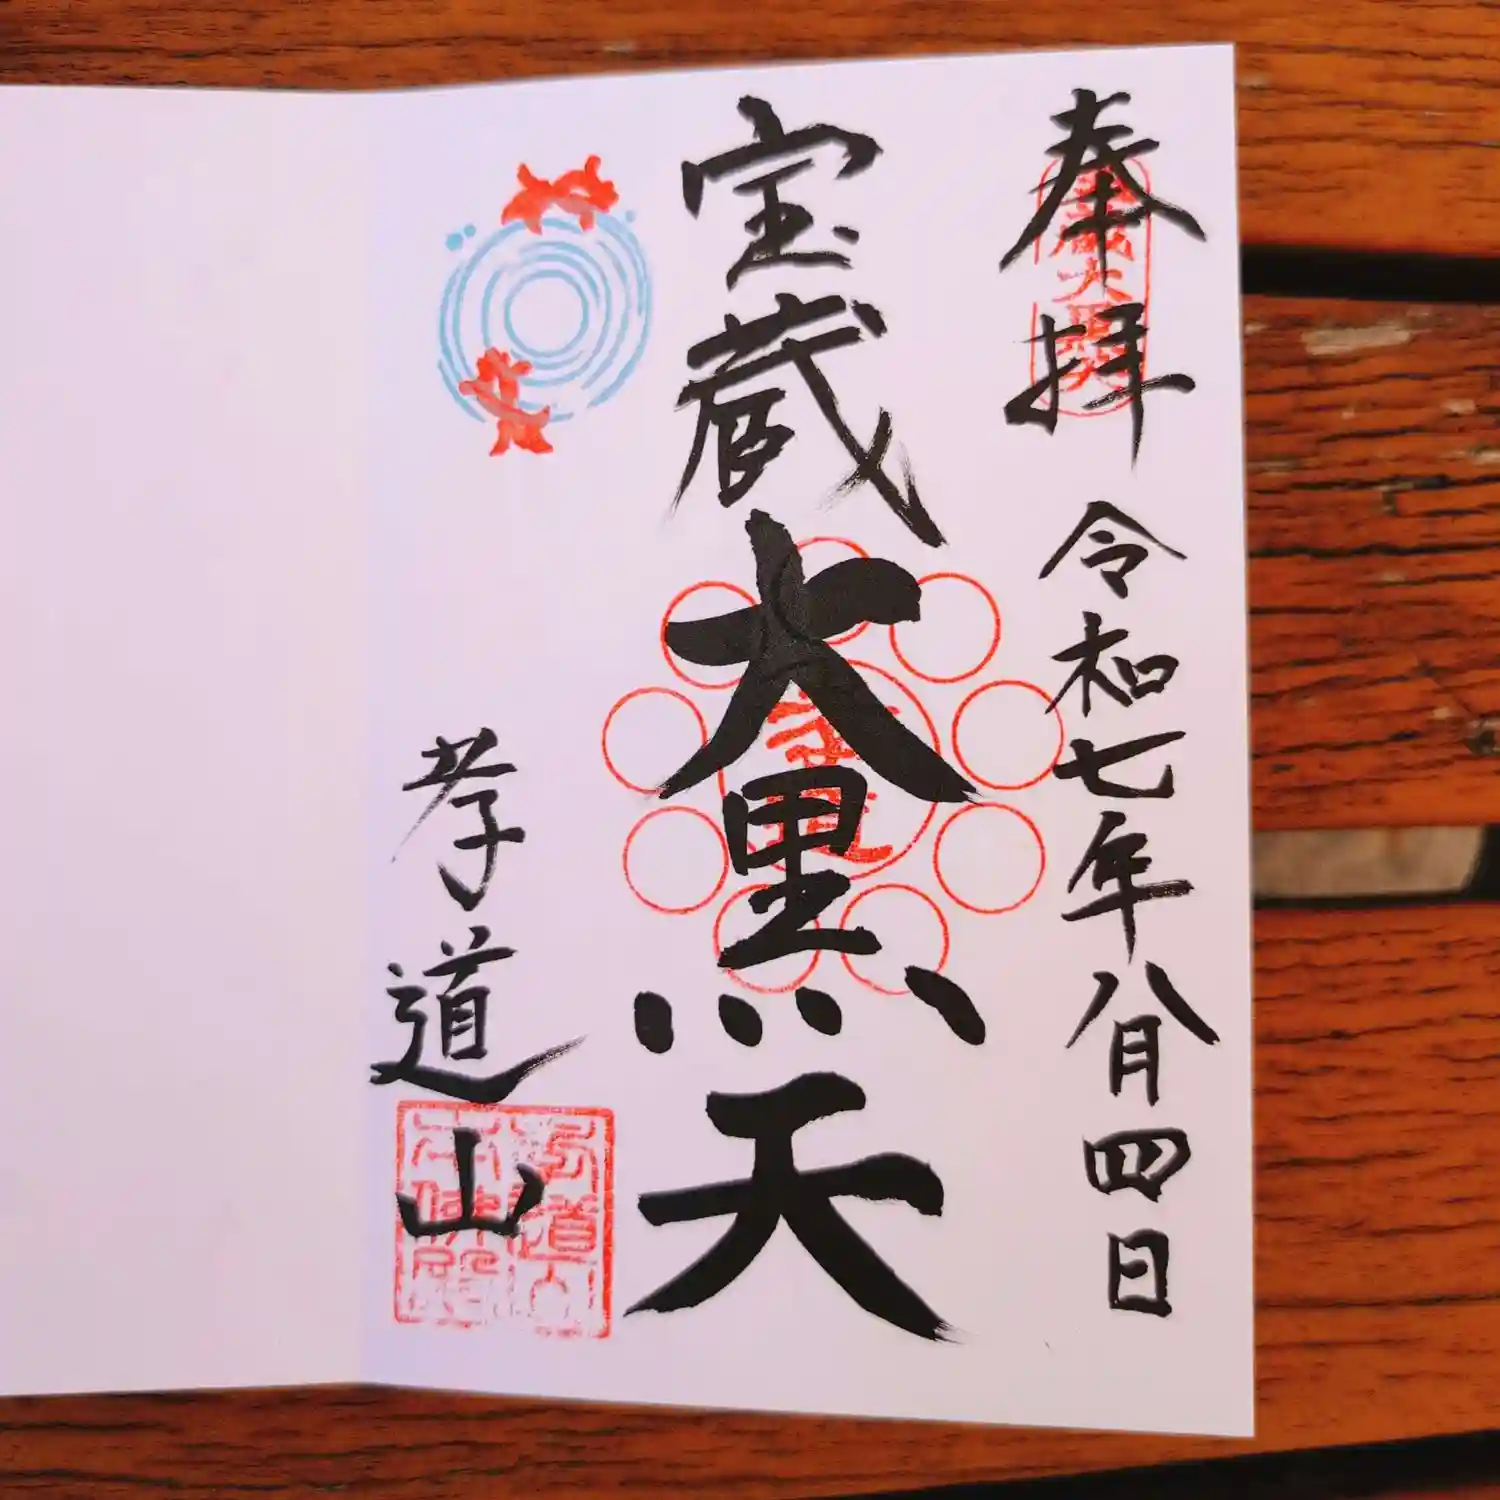 奉拝 令和七年八月四日
宝蔵大黒天
孝道山